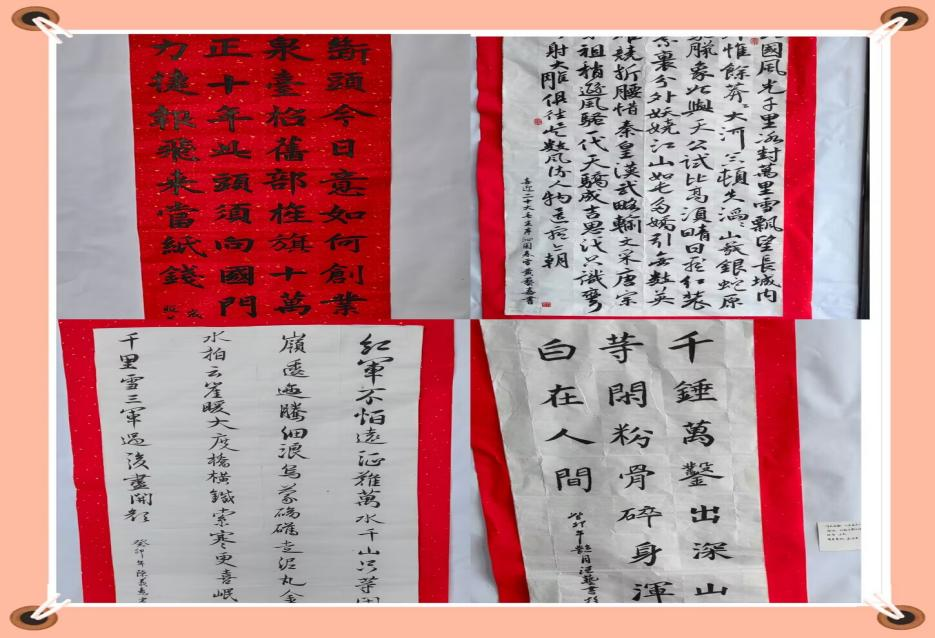 斷頭今日意如何創業
泉臺招舊部旌旗十萬
正十年此頭須向國門
力捷報飛來當紙錢
國風光千里冰封萬里雪飄望長城内
惟餘莽〻大河上下頓失滔〻山舞銀蛇原
蠟象欲與天公試比高須晴日看紅裝
素裹分外妖嬈江山如此多嬌引無數英
競折腰惜秦皇漢武略輸文采唐宗
祖稍遜風騷一代天驕成吉思汗只識彎
射大雕俱往矣數風流人物還看今朝
喜迎二十大毛主席沁園春雪黃書
紅軍不怕遠征難萬水千山只等閑
嶺逶迤騰細浪烏蒙磅礴走泥丸金
水拍云崖暖大度橋橫鐵索寒更喜岷
千里雪三軍過後盡開顏
癸卯年陳義
千錘萬鑿出深山
等閑粉骨碎身渾
白在人間
癸卯年月書於